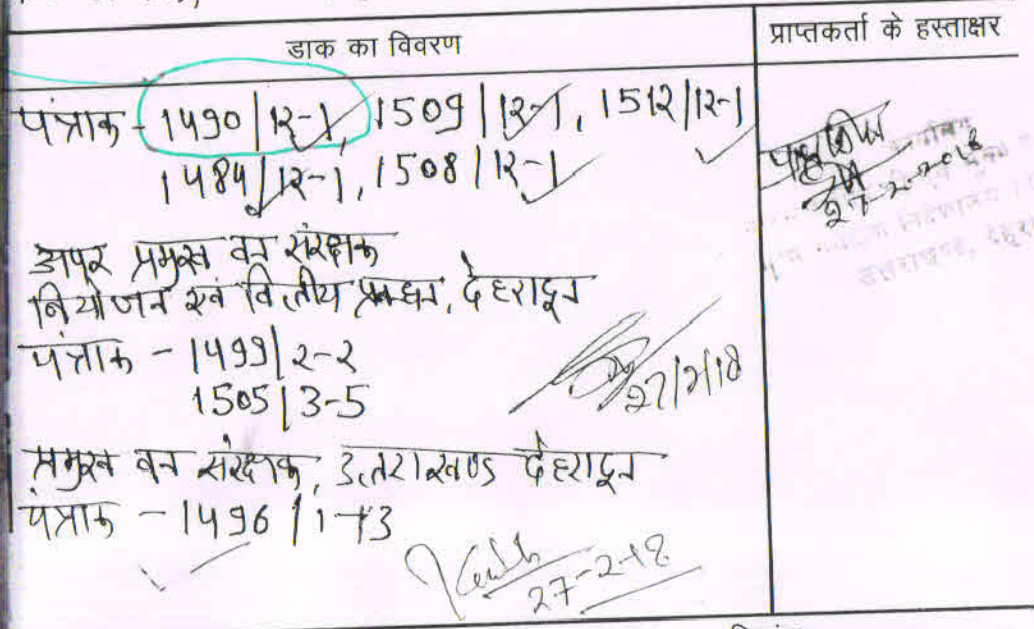 डाक का विवरण
प्राप्तकर्ता के हस्ताक्षर
पंत्राक - 1490/12-1, 1509/12-1, 1512/12-1
1484/12-1, 1508/12-1
27-2-2018
अपर प्रमुख वन संरक्षक
नियोजन एवं वित्तीय प्रबन्धन, देहरादून
पंत्राक - 1499/2-2
1505/3-5
27/2/18
प्रमुख वन संरक्षक, उत्तराखण्ड देहरादून
पंत्राक - 1496/1-13
27-2-18